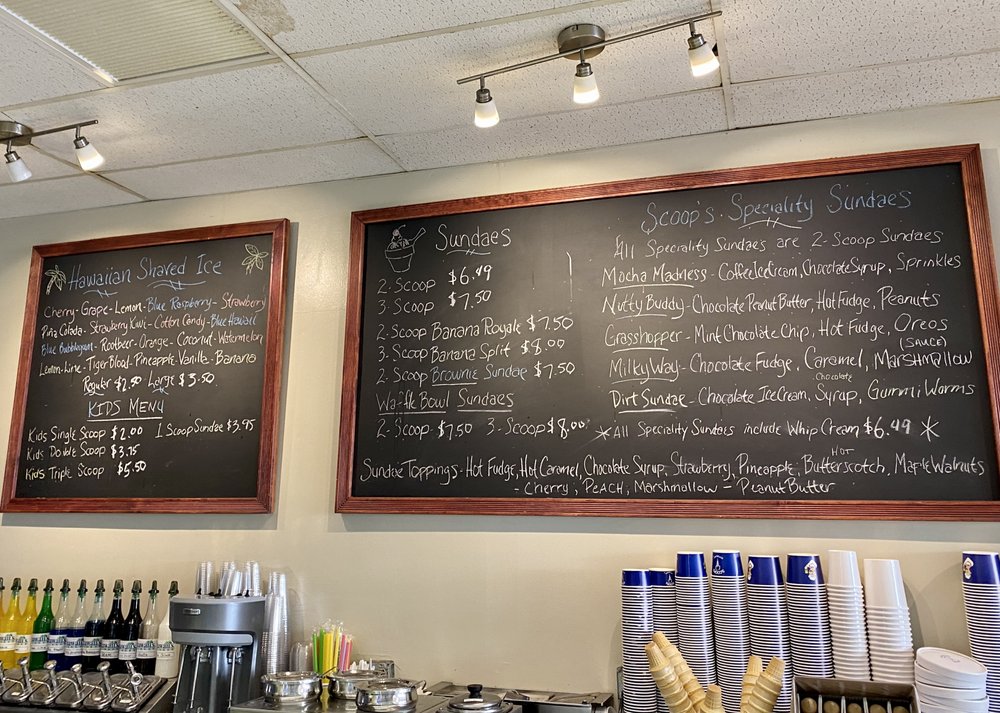 Hawaiian Shaved Ice
Cherry-Grape-Lemon-Blue Raspberry-Strawberry
Piña Colada-Strawberry Kiwi-Cotton Candy-Blue Hawaii
Blue Bubblegum-Rootbeer-Orange-Coconut-Watermelon
Lemon-Lime-Tiger Blood-Pineapple-Vanilla-Banana
Regular Large $3.50
KIDS MENU
Kids Single Scoop $2.00 1 Scoop Sundae $3.95
Kids Double Scoop $3.75
Kids Triple Scoop $5.50
Sundaes
2-Scoop $6.49
3-Scoop $7.50
2-Scoop Banana Royale $7.50
3-Scoop Banana Split $8.00
2-Scoop Brownie Sundae $7.50
Waffle Bowl Sundaes
2-Scoop-$7.50 3-Scoop $8.00
Scoop's Speciality Sundaes
All Speciality Sundaes are 2-Scoop Sundaes
Mocha Madness-Coffee Ice Cream, Chocolate Syrup, Sprinkles
Nutty Buddy-Chocolate Peanut Butter, Hot Fudge, Peanuts
Grasshopper-Mint Chocolate Chip, Hot Fudge, Oreos
(SAUCE)
Milky Way-Chocolate Fudge, Caramel, Marshmallow
Chocolate
Dirt Sundae-Chocolate Ice Cream, Syrup, Gummi Worms
*All Speciality Sundaes include Whip Cream $6.49*
HOT
Sundae Toppings-Hot Fudge, Hot Caramel, Chocolate Syrup, Strawberry, Pineapple, Butterscotch, Maple Walnuts
-Cherry, Peach, Marshmallow-Peanut Butter